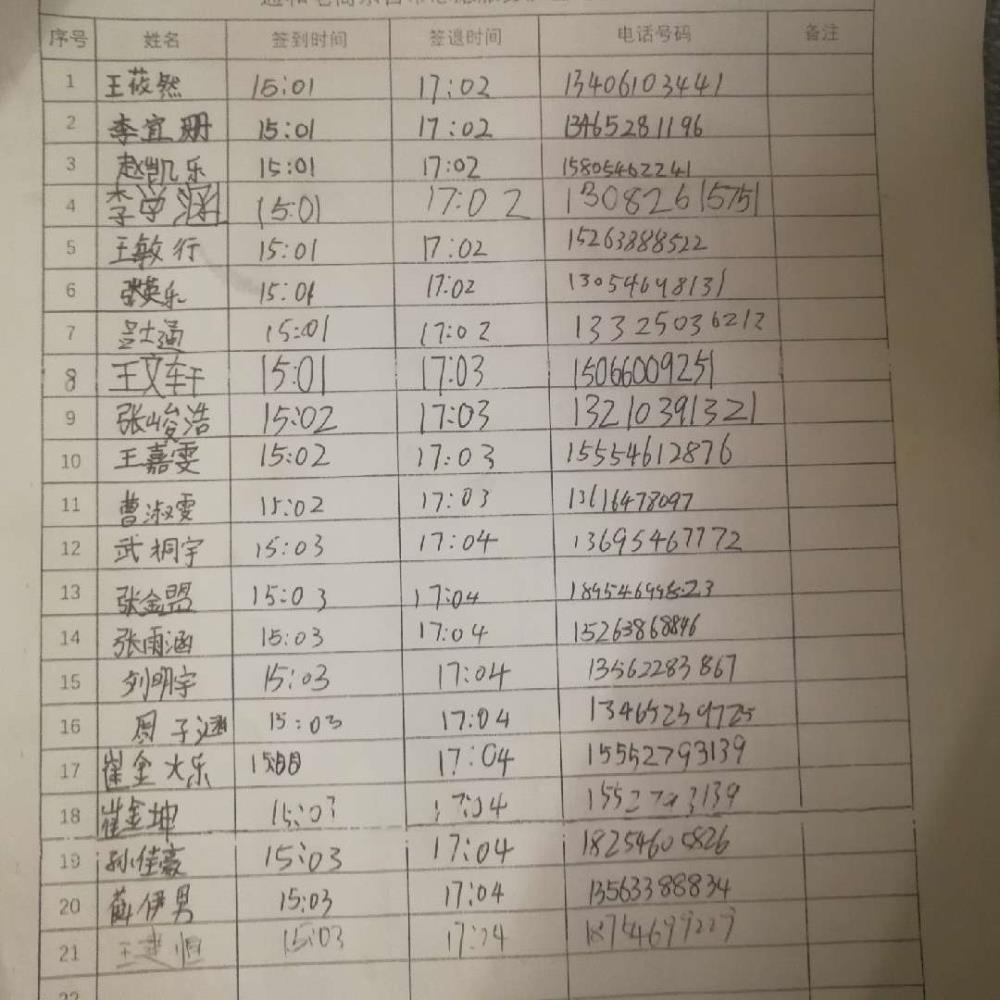 序号 姓名 签到时间 签退时间 电话号码 备注
1 王莜然 15:01 17:02 13406103441
2 李宜珊 15:01 17:02 13465281196
3 赵凯乐 15:01 17:02 15805462241
4 李学涵 15:01 17:02 13082615751
5 王敏行 15:01 17:02 15263888522
6 张英乐 15:01 17:02 13054698131
7 15:01 17:02 13325036212
8 王文轩 15:01 17:03 15066009251
9 张峻浩 15:02 17:03 13210391321
10 王嘉雯 15:02 17:03 15554612876
11 曹淑雯 15:02 17:03 13616478097
12 武桐宇 15:03 17:04 13695467772
13 张金盟 15:03 17:04
14 张雨涵 15:03 17:04 15263868846
15 刘明宇 15:03 17:04 13562283867
16 周子涵 15:03 17:04
17 崔金大乐 17:04 15552793139
18 崔金坤 15:03 17:04
19 孙佳豪 15:03 17:04 18254605826
20 薛伊男 15:03 17:04 13563388834
21 15:03
22